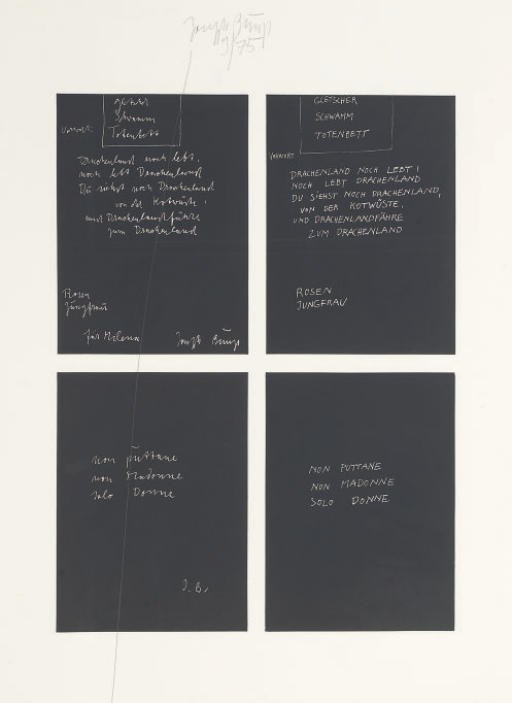 Joseph Beuys
9/75
Gletscher
Schwamm
Totenbett
Vorwort:
Drachenland noch lebt,
noch lebt Drachenland
Du siehst noch Drachenland
von der Kotwüste,
und Drachenlandfähre
zum Drachenland
Rosen
Jungfrau
für Milena Joseph Beuys
GLETSCHER
SCHWAMM
TOTENBETT
VORWORT
DRACHENLAND NOCH LEBT!
NOCH LEBT DRACHENLAND
DU SIEHST NOCH DRACHENLAND,
VON DER KOTWÜSTE,
UND DRACHENLANDFÄHRE
ZUM DRACHENLAND
ROSEN
JUNGFRAU
non puttane
non Madonne
solo Donne
J.B.
NON PUTTANE
NON MADONNE
SOLO DONNE